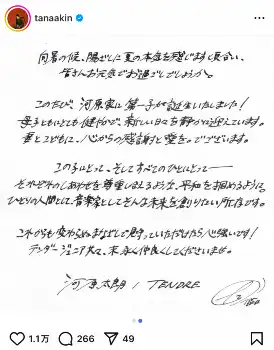 tanaakin
向暑の候、陽ざしに夏の本格を感じます度合い、
皆さんお元気でお過ごしでしょうか。
このたび、河原家に第一子が誕生いたしました！
母子ともにとても健やかで、新しい日々を静かに迎えています。
妻とともに、心からの感謝と愛を。でございます。
この子にとって、そしてすべてのひとにとって——
それぞれのしあわせを尊重しあえるような、平和を掴めるように
ひとりの人間として、音楽家としてそんな未来を創りたい所存です。
これからも変わらぬまなざしで見守っていただけたら心強いです！
テンダージュニア共々、末永く仲良くしてくださいませ。
河原太朗 / TENDRE
1.1万
266
96